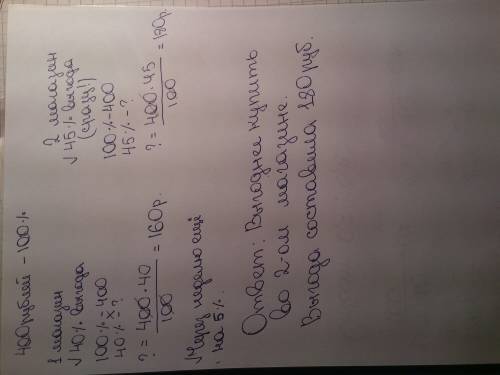 400 рублей – 100%
1 магазин
√ 40% выгода
100% = 400
40% = ?
? = 400·40 / 100 = 160р.
Через неделю ещё
на 5%.
2 магазин
√ 45% выгода
(сразу!)
100% – 400
45% – ?
? = 400·45 / 100 = 180р.
Ответ: Выгоднее купить
во 2-ом магазине.
Выгода составила 180 руб.